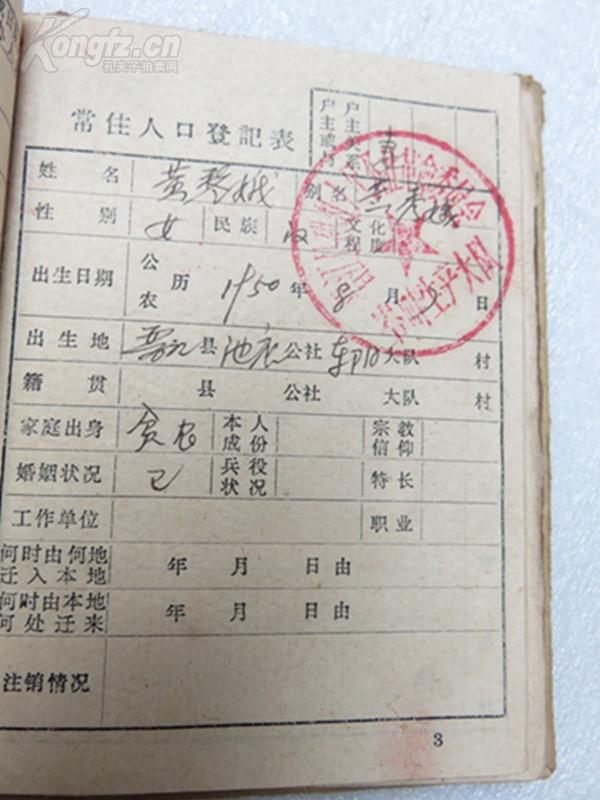 Kongfz.cn
孔夫子拍卖网
常住人口登記表
户主或与户主关系 妻
姓名 黄 娥 别名 黄秀娥
性别 女 民族 汉 文化程度
出生日期 公农历 1950年8月 日
出生地 晋江县池店公社 大队 村
籍贯 县 公社 大队 村
家庭出身 贫农 本人成份 宗教信仰
婚姻状况 已 兵役状况 特长
工作单位 职业
何时由何地迁入本地 年 月 日由
何时由本地何处迁来 年 月 日由
注销情况
3
生产大队